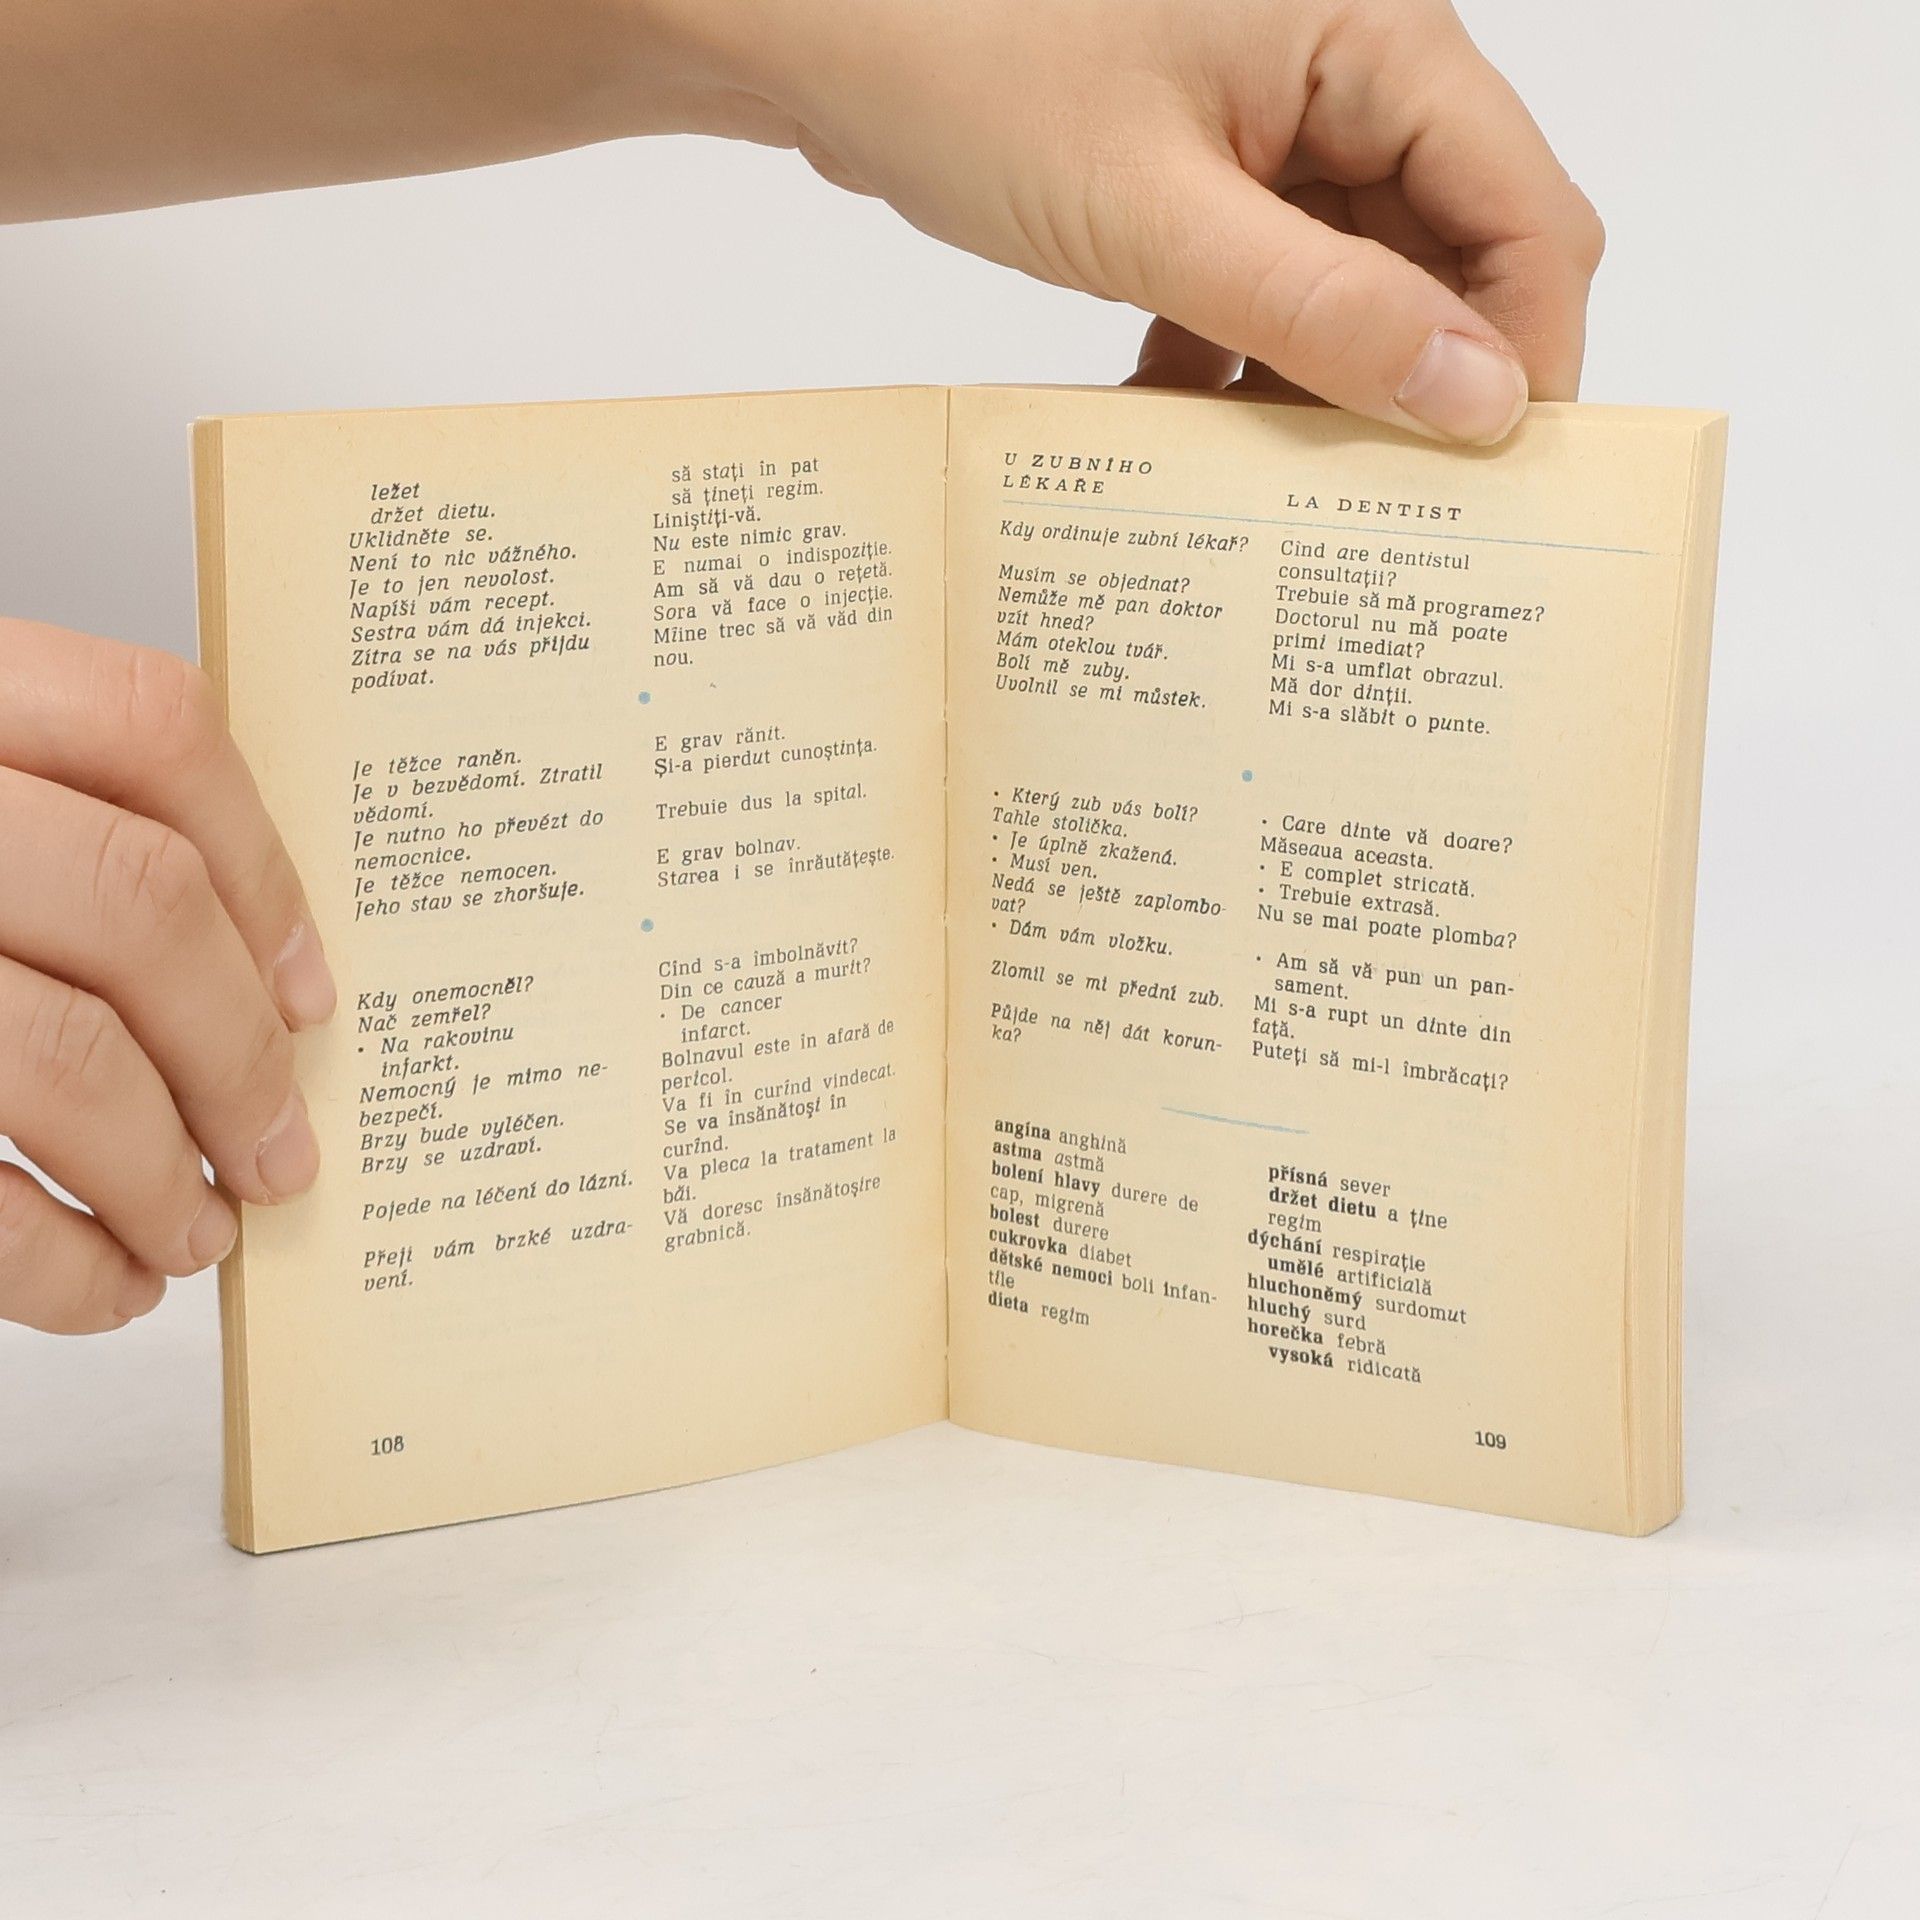 ležet
držet dietu.
Uklidněte se.
Není to nic vážného.
Je to jen nevolost.
Napíši vám recept.
Sestra vám dá injekci.
Zítra se na vás přijdu
podívat.
Je těžce raněn.
Je v bezvědomí. Ztratil
vědomí.
Je nutno ho převézt do
nemocnice.
Je těžce nemocen.
Jeho stav se zhoršuje.
Kdy onemocněl?
Nač zemřel?
• Na rakovinu
infarkt.
Nemocný je mimo ne-
bezpečí.
Brzy bude vyléčen.
Brzy se uzdraví.
Pojede na léčení do lázní.
Přeji vám brzké uzdra-
vení.
108
să stați în pat
să țineți regim.
Liniștiți-vă.
Nu este nimic grav.
E numai o indispoziție.
Am să vă dau o rețetă.
Sora vă face o injecție.
Mîine trec să vă văd din
nou.
E grav rănit.
Și-a pierdut cunoștința.
Trebuie dus la spital.
E grav bolnav.
Starea i se înrăutățește.
Cînd s-a îmbolnăvit?
Din ce cauză a murit?
• De cancer
infarct.
Bolnavul este în afară de
pericol.
Va fi în curînd vindecat.
Se va însănătoși în
curînd.
Va pleca la tratament la
băi.
Vă doresc însănătoșire
grabnică.
U ZUBNÍHO
LÉKAŘE
Kdy ordinuje zubní lékař?
Musím se objednat?
Nemůže mě pan doktor
vzít hned?
Mám oteklou tvář.
Bolí mě zuby.
Uvolnil se mi můstek.
• Který zub vás bolí?
Tahle stolička.
• Je úplně zkažená.
• Musí ven.
Nedá se ještě zaplombo-
vat?
• Dám vám vložku.
Zlomil se mi přední zub.
Půjde na něj dát korun-
ka?
LA DENTIST
Cînd are dentistul
consultații?
Trebuie să mă programez?
Doctorul nu mă poate
primi imediat?
Mi s-a umflat obrazul.
Mă dor dinții.
Mi s-a slăbit o punte.
• Care dinte vă doare?
Măseaua aceasta.
• E complet stricată.
• Trebuie extrasă.
Nu se mai poate plomba?
• Am să vă pun un pan-
sament.
Mi s-a rupt un dinte din
față.
Puteți să mi-l îmbrăcați?
angína anghină
astma astmă
bolení hlavy durere de
cap, migrenă
bolest durere
cukrovka diabet
dětské nemoci boli infan-
tile
dieta regim
přísná sever
držet dietu a ține
regim
dýchání respirație
umělé artificială
hluchoněmý surdomut
hluchý surd
horečka febră
vysoká ridicată
109